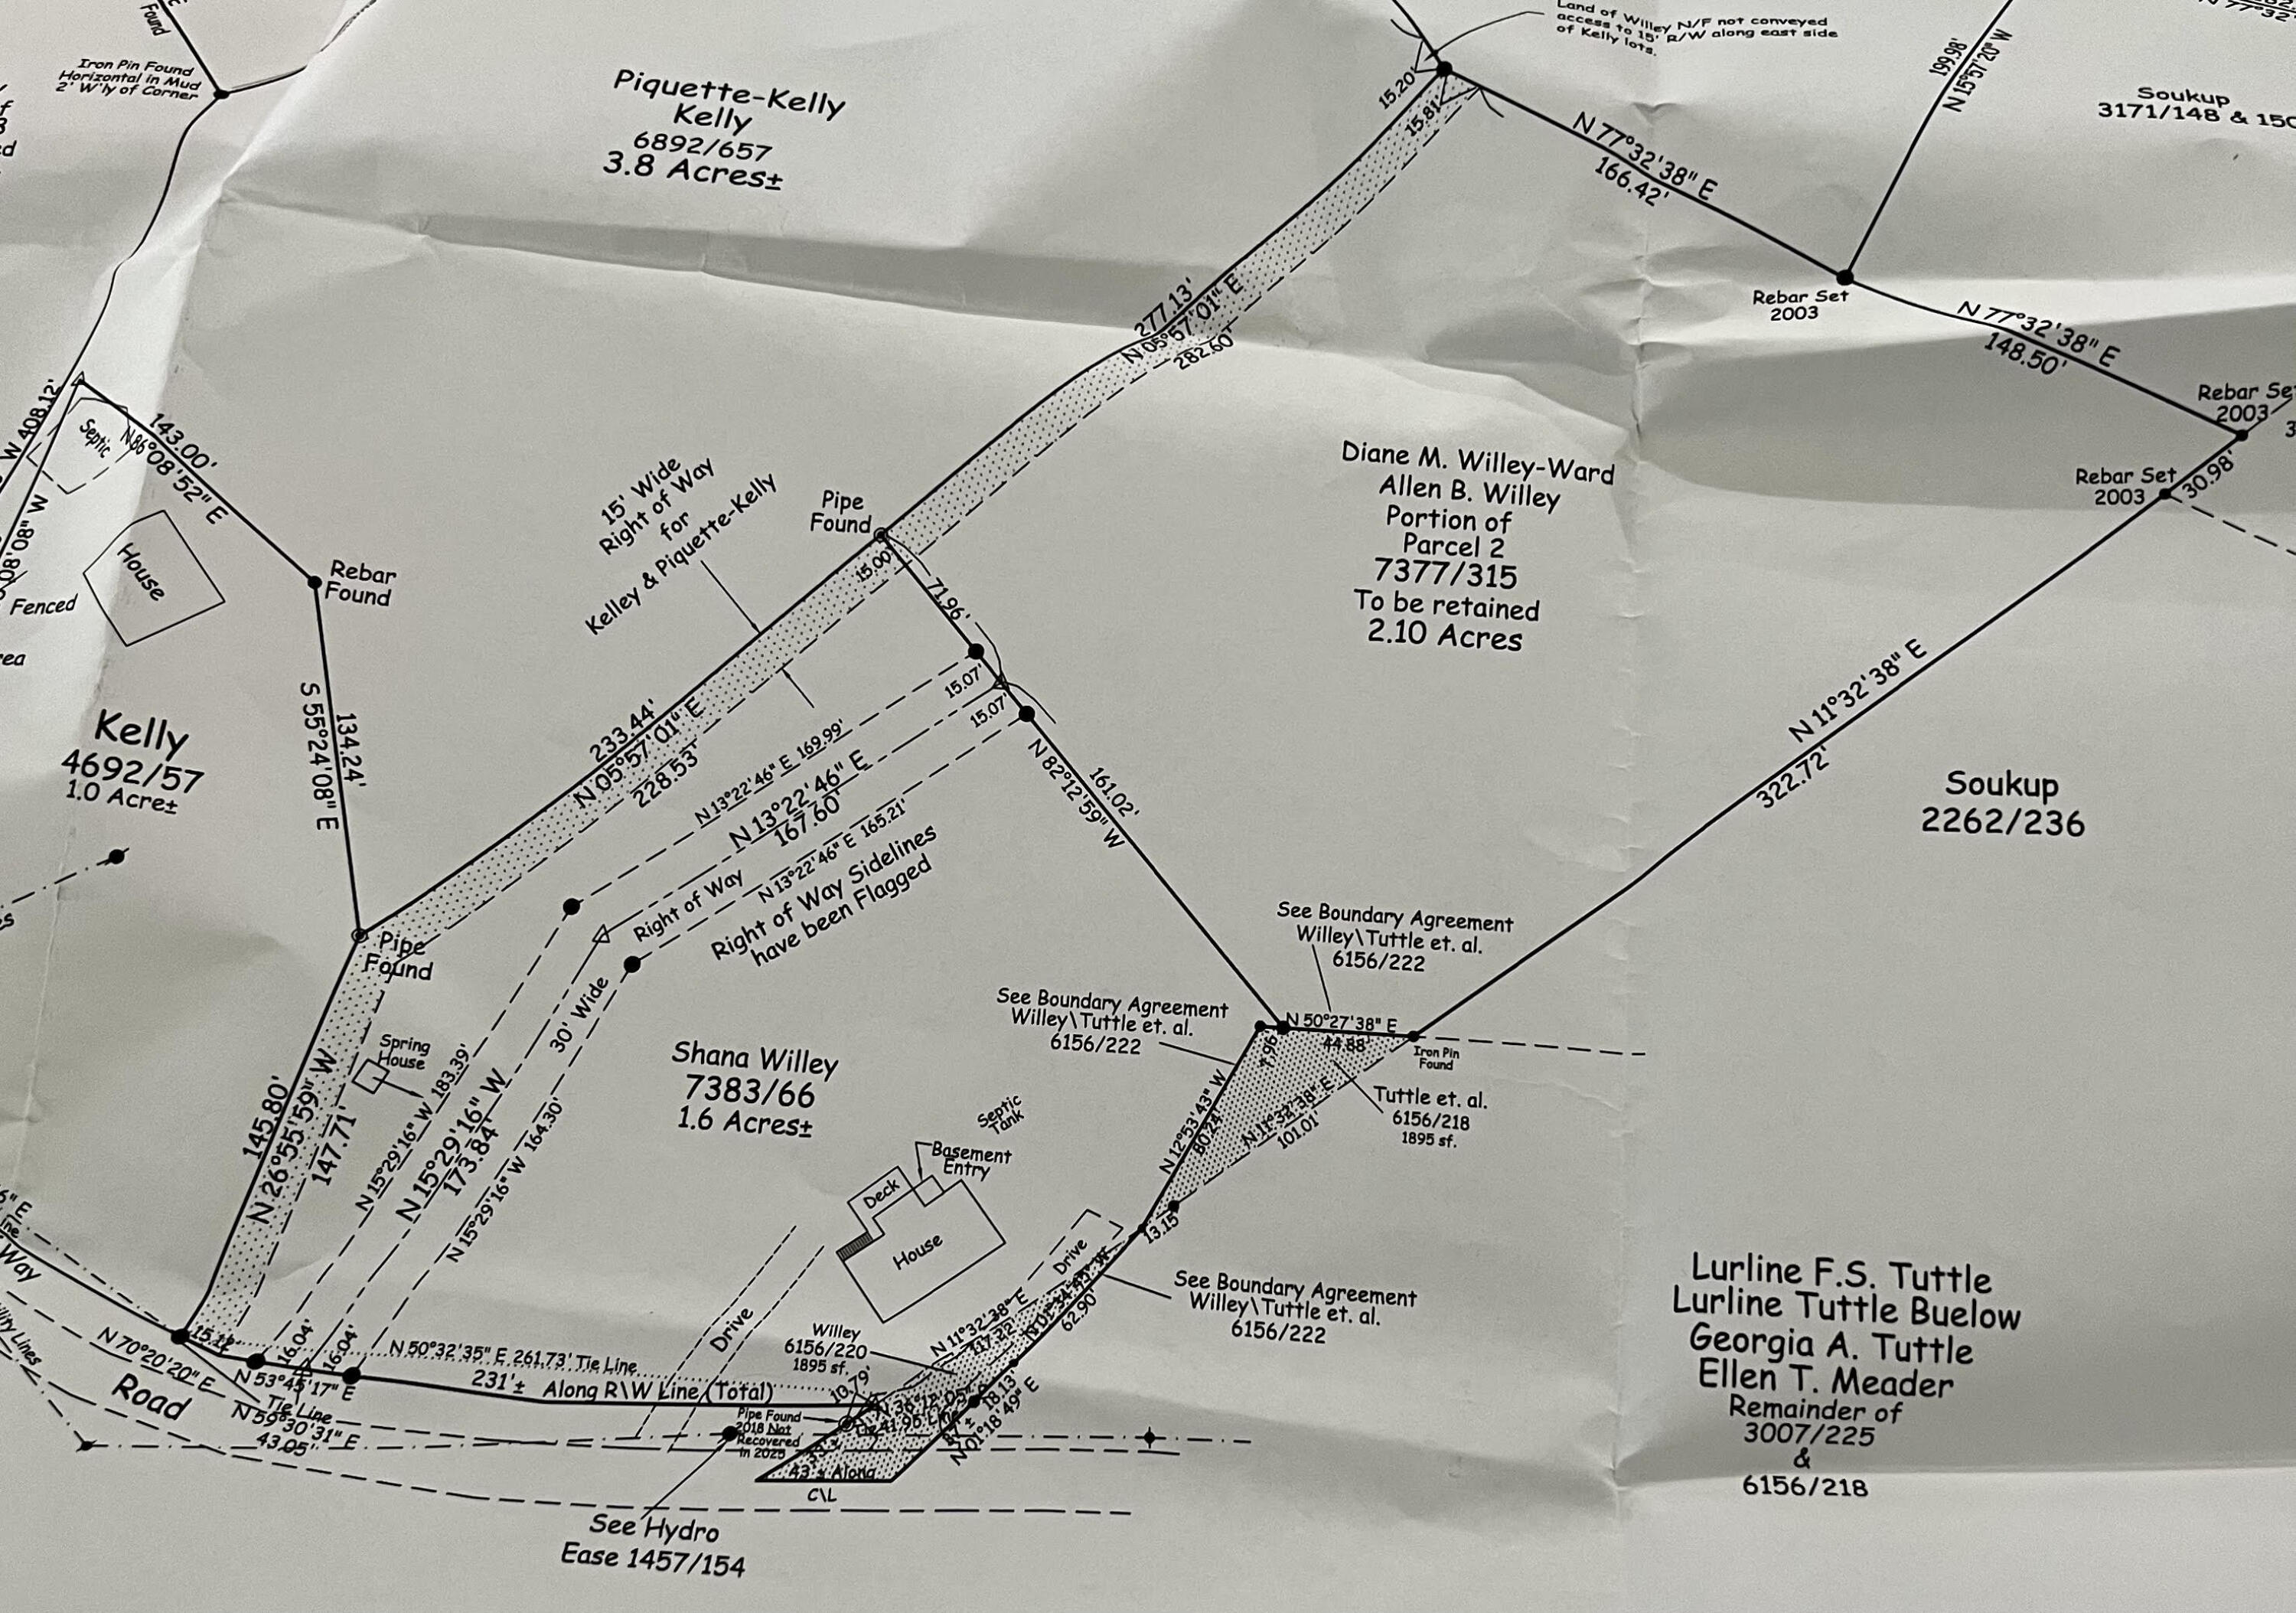 Found
Iron Pin Found
Horizontal in Mud
2' W'ly of Corner
Piquette-Kelly
Kelly
6892/657
3.8 Acres±
Land of Willey N/F not conveyed
access to 15' R/W along east side
of Kelly lots.
15.20'
15.81'
N 77°32'38" E
166.42'
199.98'
N 15°57'20" W
Soukup
3171/148 & 150
N 77°32'
Rebar Set
2003
N 77°32'38" E
148.50'
Rebar Set
2003
Rebar Set
2003
30.98'
277.13'
N 05°57'01" E
282.60'
W 408.12'
08'08" W
Septic
143.00'
N 86°08'52" E
House
Fenced
Rebar
Found
15' Wide
Right of Way
for
Kelley & Piquette-Kelly
Pipe
Found
15.00'
71.96'
Diane M. Willey-Ward
Allen B. Willey
Portion of
Parcel 2
7377/315
To be retained
2.10 Acres
Kelly
4692/57
1.0 Acre±
134.24'
S 55°24'08" E
233.44'
N 05°57'01" E
228.53'
15.07'
15.07'
N 13°22'46" E 169.99'
N 13°22'46" E
167.60'
N 13°22'46" E 165.21'
Right of Way
Right of Way Sidelines
have been Flagged
161.02'
N 82°12'59" W
N 11°32'38" E
322.72'
Soukup
2262/236
Pipe
Found
30' Wide
Spring
House
145.80'
N 26°55'59" W
147.71'
N 15°29'16" W 183.39'
N 15°29'16" W
173.84'
N 15°29'16" W 164.30'
Shana Willey
7383/66
1.6 Acres±
Septic
Tank
Basement
Entry
Deck
House
See Boundary Agreement
Willey\Tuttle et. al.
6156/222
See Boundary Agreement
Willey\Tuttle et. al.
6156/222
N 50°27'38" E
44.88'
7.96'
Iron Pin
Found
Tuttle et. al.
6156/218
1895 sf.
N 12°53'43" W
80.24'
N 11°32'38" E
101.01'
13.15'
Drive
See Boundary Agreement
Willey\Tuttle et. al.
6156/222
62.90'
N 11°32'38" E
117.22'
Drive
Willey
6156/220
1895 sf.
Way
Road
15.12'
16.04'
16.04'
N 50°32'35" E 261.73' Tie Line
231'± Along R\W Line (Total)
N 70°20'20" E
N 53°45'17" E
Tie Line
N 59°30'31" E
43.05'
10.79'
Pipe Found
2018 Not
Recovered
in 2025
18.13'
N 01°18'49" E
43'± Along
C\L
See Hydro
Ease 1457/154
Lurline F.S. Tuttle
Lurline Tuttle Buelow
Georgia A. Tuttle
Ellen T. Meader
Remainder of
3007/225
&
6156/218